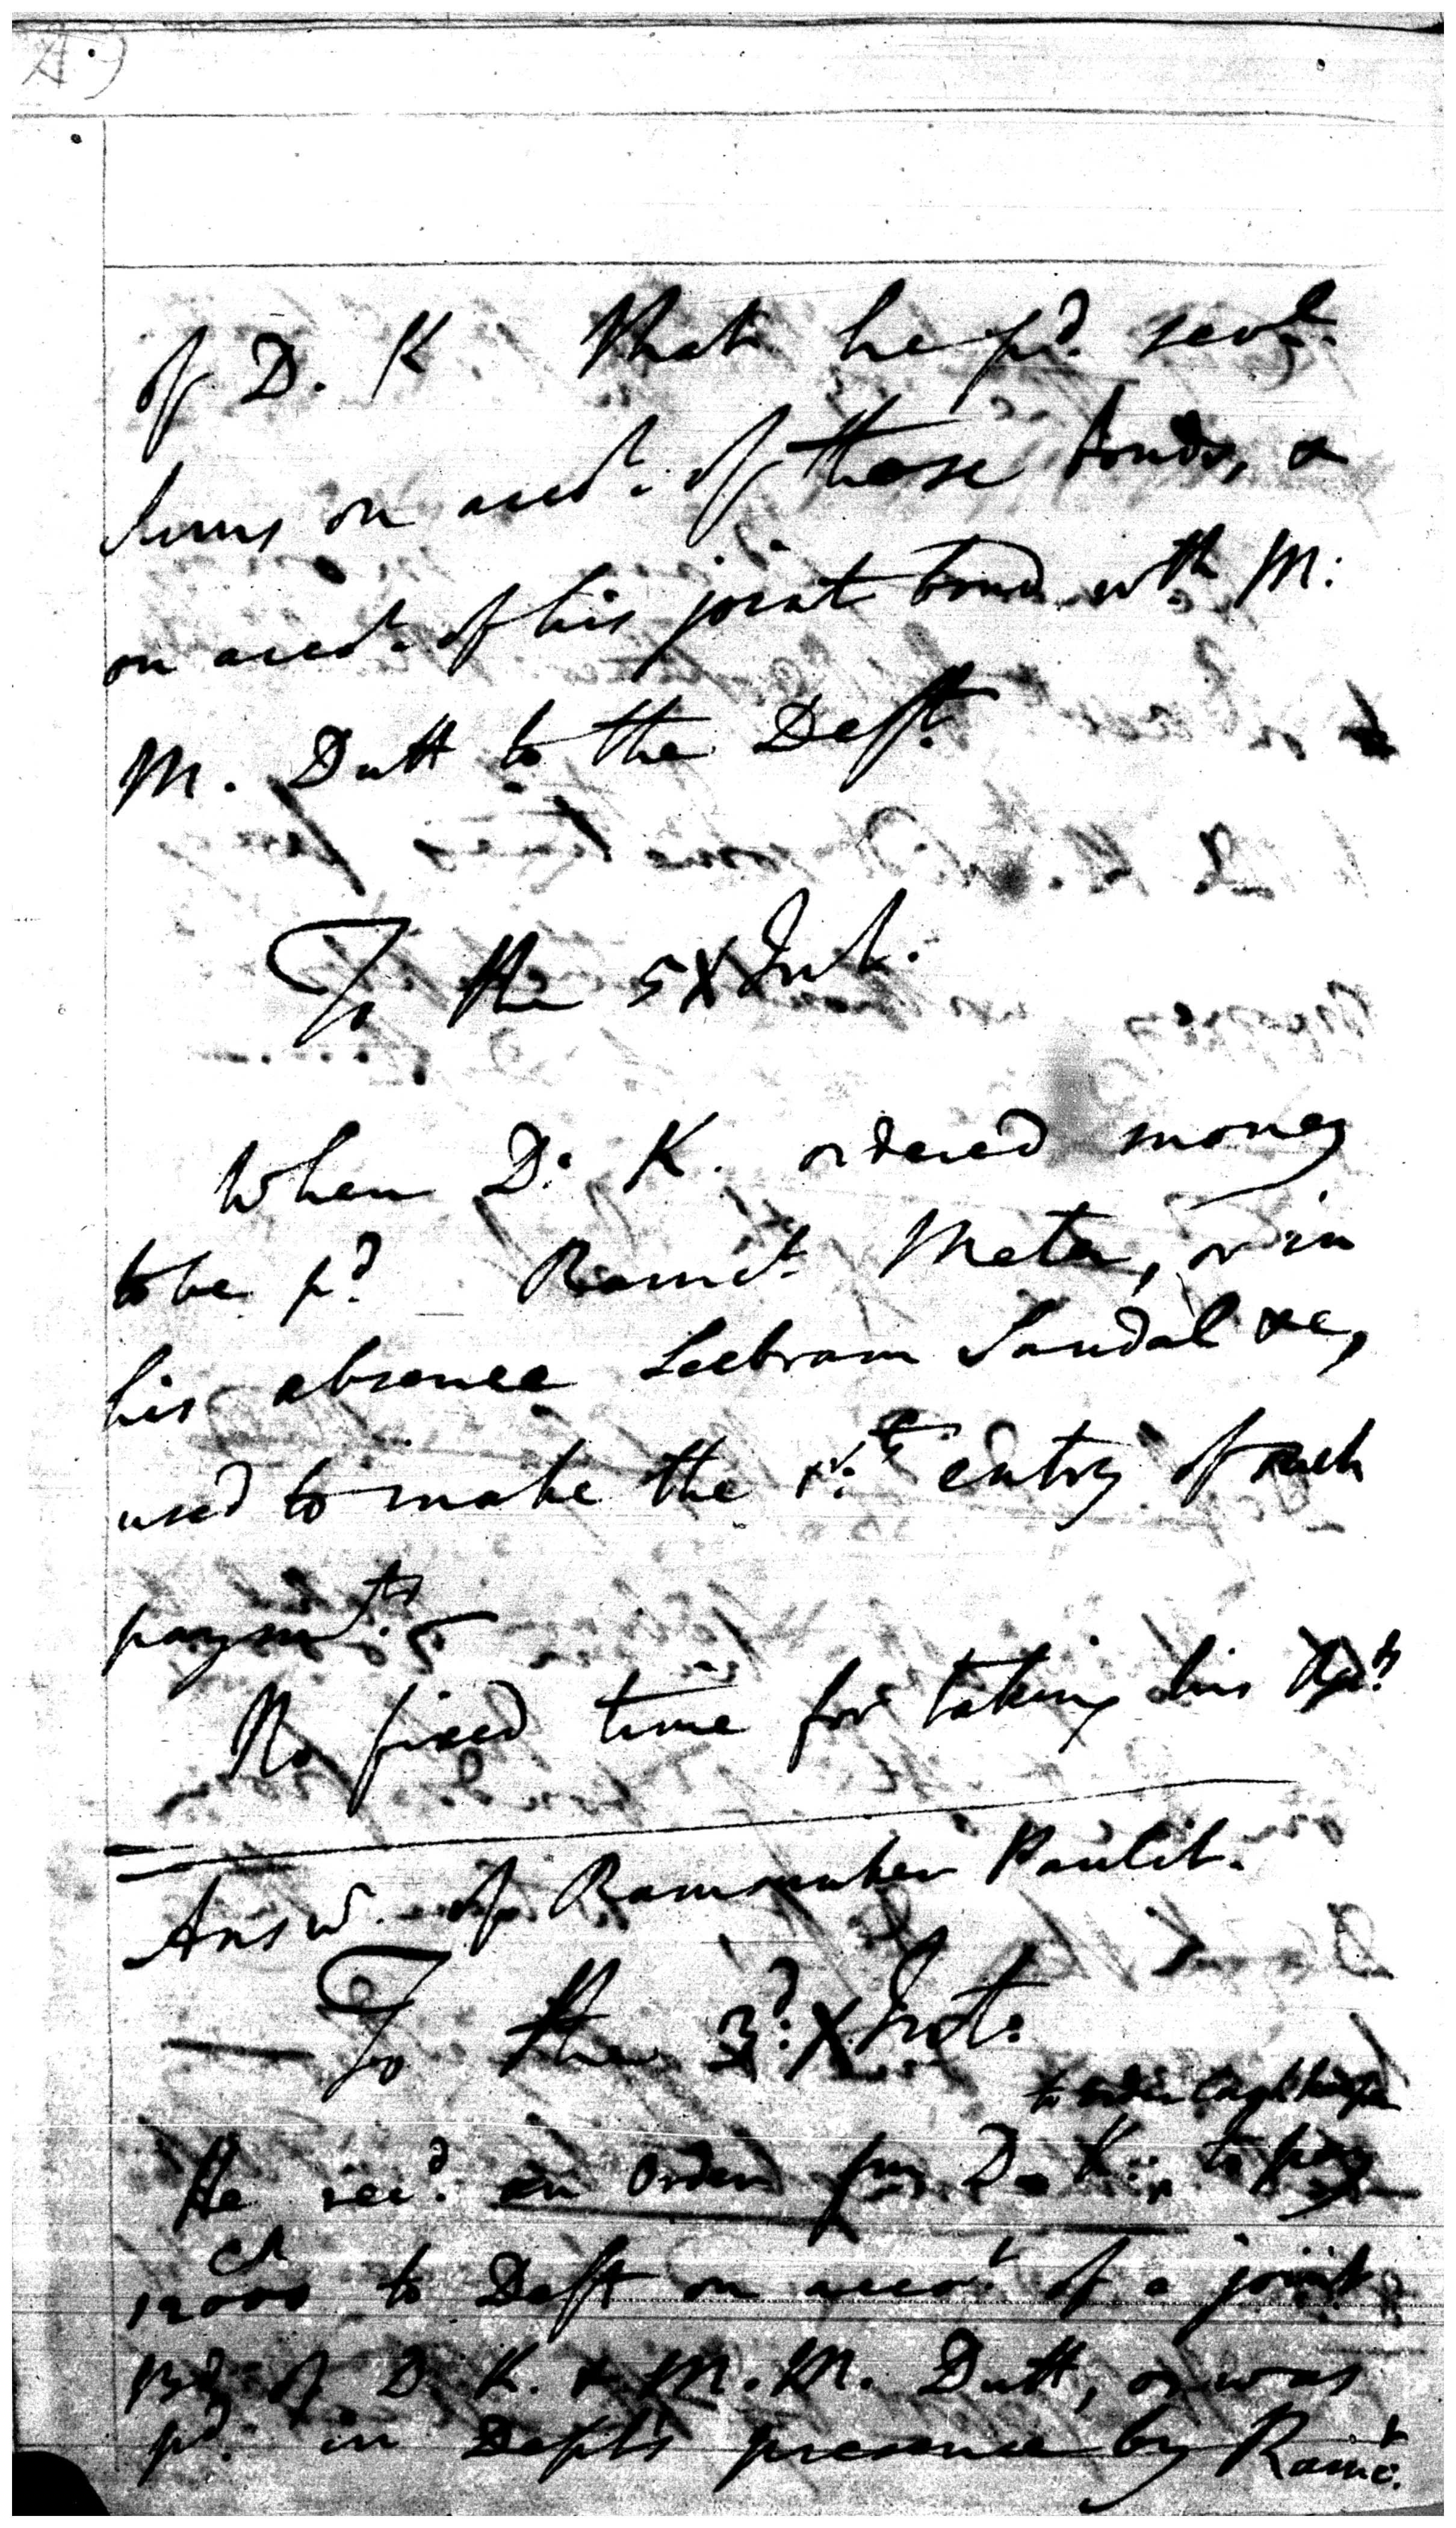 of D. K that he pd. sevl.
sums on acct. of these bonds, &
on acct. of his joint bond with M:
M. Dutt to the Deft.
To the 5 X Int.
When D: K. ordered money
to be pd. Ramct. Meter, or in
his absence Seebram Sandal &c,
used to make the entry of such
paymts.
No fixed time for taking his
Answ. of Ramsunker Paulit.
To the 3d: X Int:
to order Cash keeper
He recd. an Order from D. K. to pay
12000 to Deft on accot of a joint
Bd. of D. K. & M. M. Dutt, was
pd. in Deft's presence by Ramct.